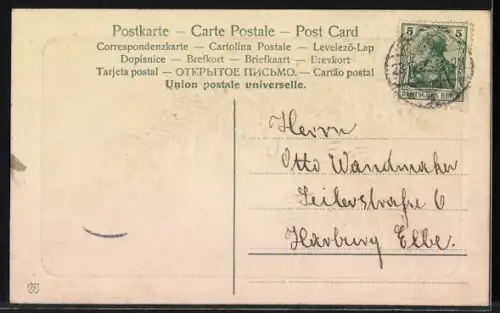 Postkarte – Carte Postale – Post Card
Correspondenzkarte – Cartolina Postale – Levelező-Lap
Dopisnice – Brefkort – Briefkaart – Brevkort
Tarjeta postal – ОТКРЫТОЕ ПИСЬМО. – Cartão postal
Union postale universelle.
5 5
DEUTSCHES REICH
Herrn
Otto Wandmaker
Seilerstraße 6
Harburg Elbe.